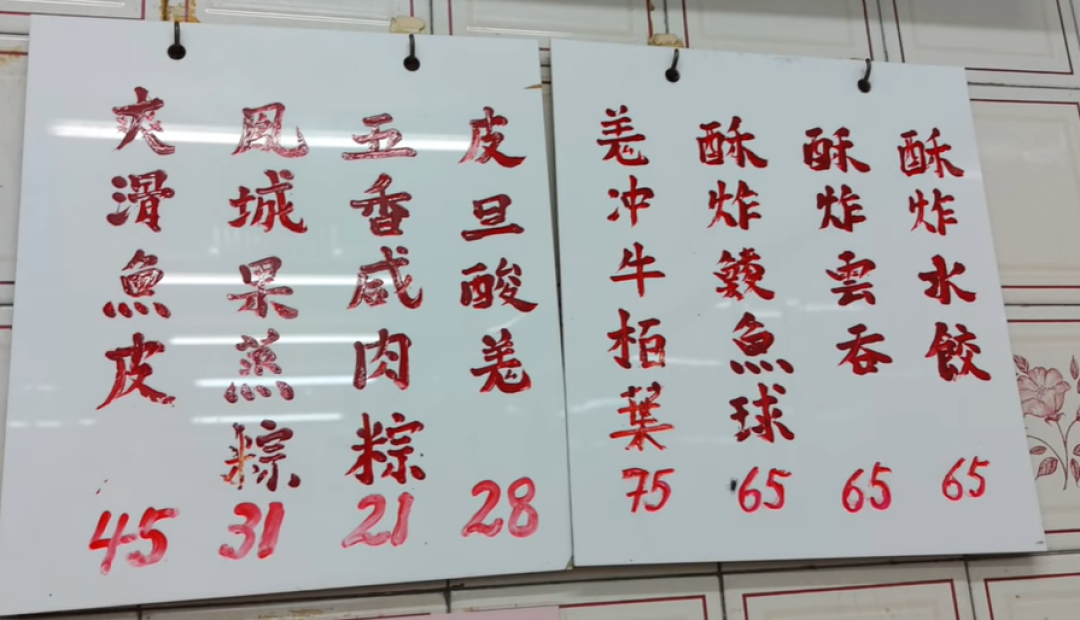 酥炸水餃
65
酥炸雲吞
65
酥炸鯪魚球
65
羗冲牛栢葉
75
皮旦酸羗
28
五香咸肉粽
21
風城果蒸粽
31
爽滑魚皮
45